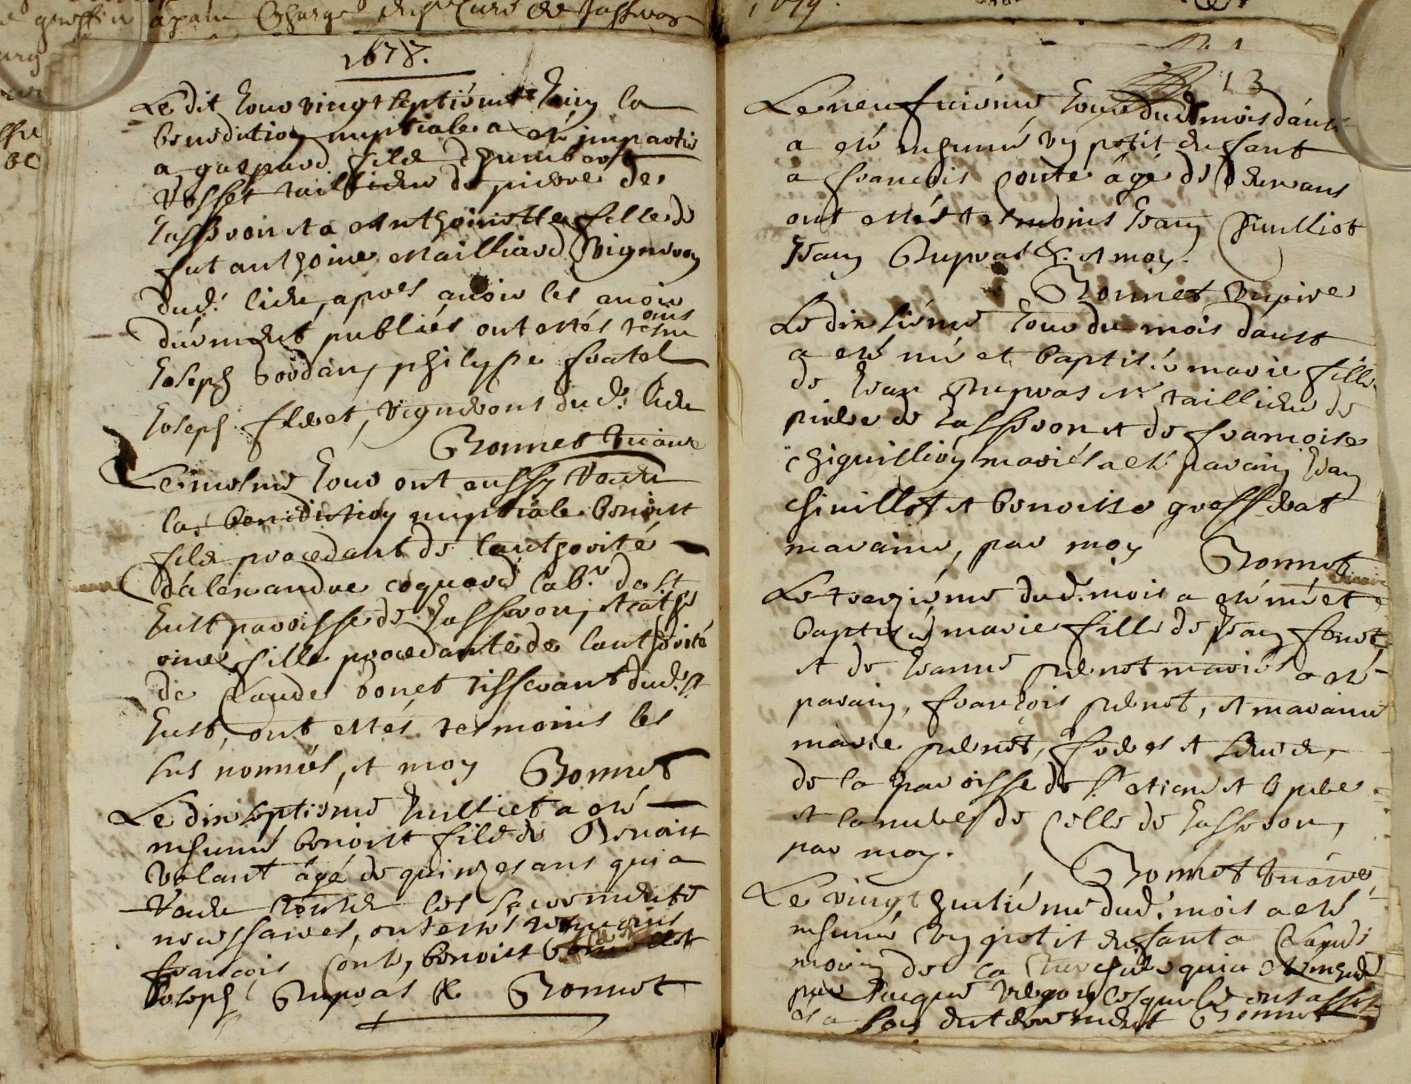 1678.
Le dit jour vingt septiéme Juin la
benediction nuptiale a eté impartie
a gaspard fils d'humbert
Vosset taillieur de pierre de
Jasseron et a Anthoinette fille de
fut anthoine Maillard Vigneron
dud. lieu, apres avoir les avoir
düement publiés ont estés tesmoins
Joseph Joordan, philippe
Joseph vignerons dud. lieu
Bonnet vicaire
Le mesme Jour ont aussy receu
la benediction nuptiale benoist
fils procedant de l'authorité
d'alexandre coquard lab.r de St
Just paroisse de Jasseron, et
fille procedante de l'authorité
de Claude bonet tisserant dud. St
Just, ont estés tesmoins les
sus nommés, et moy Bonnet
Le dix septiéme Juilliet a eté
inhumé benoist fils de Benoist
Volant âgé de quinze ans qui a
receu tous les sacrements
necessaires, ont estés tesmoins
françois Conte, benoist
Joseph Bupras & Bonnet
13
Le neufuiéme Jour dud. mois d'aust
a eté inhumé un petit enfant
a françois Conte âgé de deux ans
ont estés tesmoins Jean Juilliot
Jean Bupras & et moy.
Bonnet vicaire
Le dixiéme Jour du mois d'aust
a eté né et baptisé marie fille
de Jean Bupras taillieur de
pierre de Jasseron et de françoise
chiquillion mariés a eté parain Jean
et benoiste
maraine, par moy Bonnet
Le treziéme dud. mois a eté né et
baptisé marie fille de Jean
et de Jeanne pernot mariés a eté
parain, françois pernot, et maraine
marie pernot, freres et seurs,
de la paroisse de St etienne
et la mere de Celle de Jasseron,
par moy.
Bonnet vicaire
Le vingt huitiéme dud. mois a eté
inhumé un petit enfant a Claude
de la qui a
par Jacques lesquels ont assisté
a son enterrement Bonnet